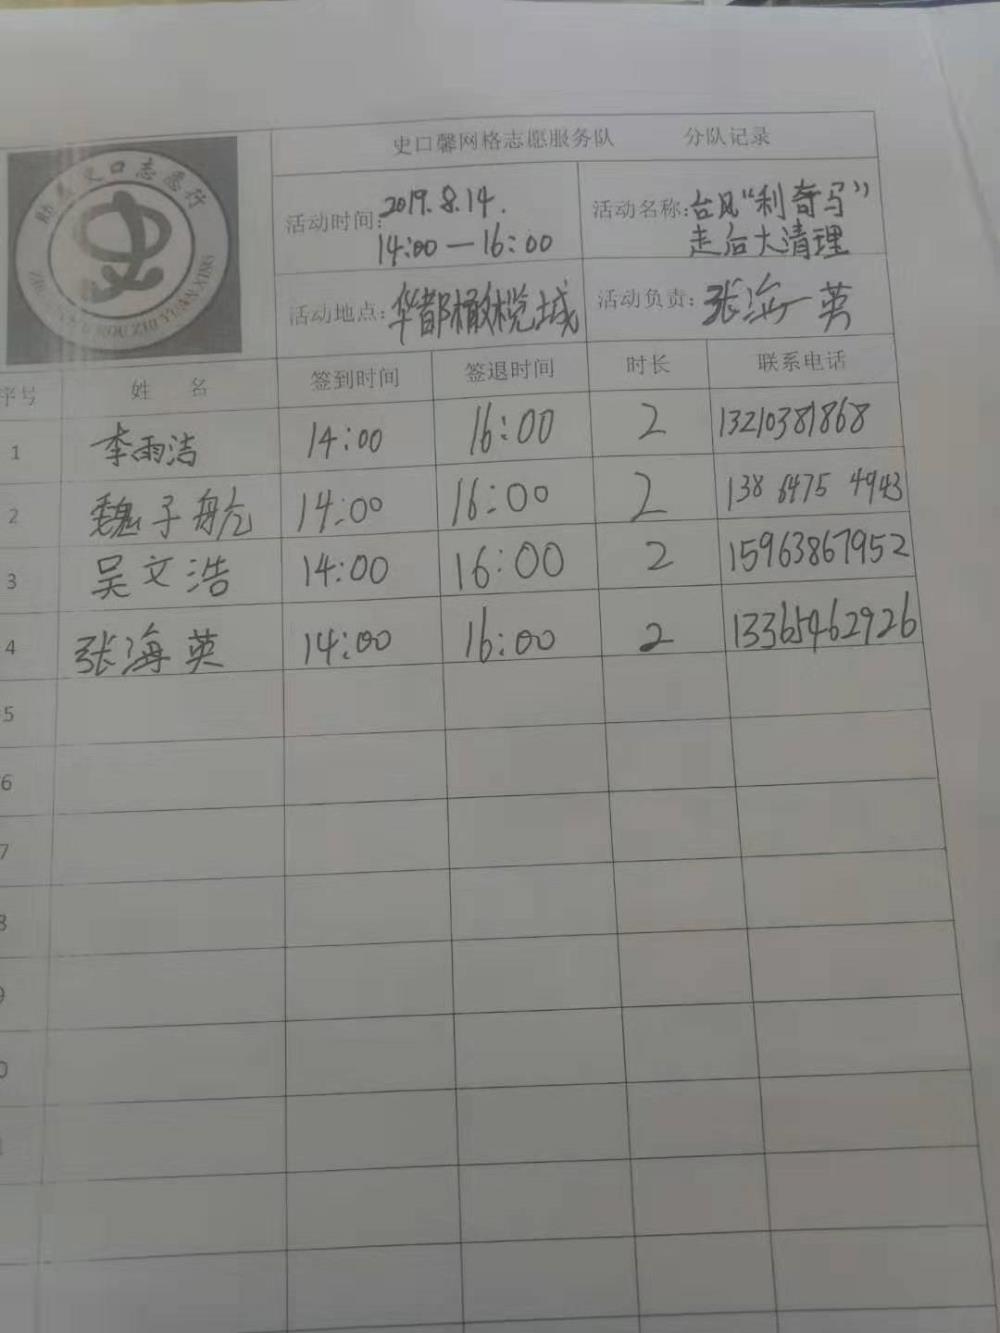 史口志愿行
史
史口馨网格志愿服务队 分队记录
活动时间: 2019.8.14.
14:00—16:00
活动名称: 台风“利奇马”
走后大清理
活动地点: 华都橄榄城
活动负责: 张海英
序号 姓 名 签到时间 签退时间 时长 联系电话
1 李雨洁 14:00 16:00 2 13210381868
2 魏子航 14:00 16:00 2 138 6475 4943
3 吴文浩 14:00 16:00 2 15963867952
4 张海英 14:00 16:00 2 13365462926
5
6
7
8
9